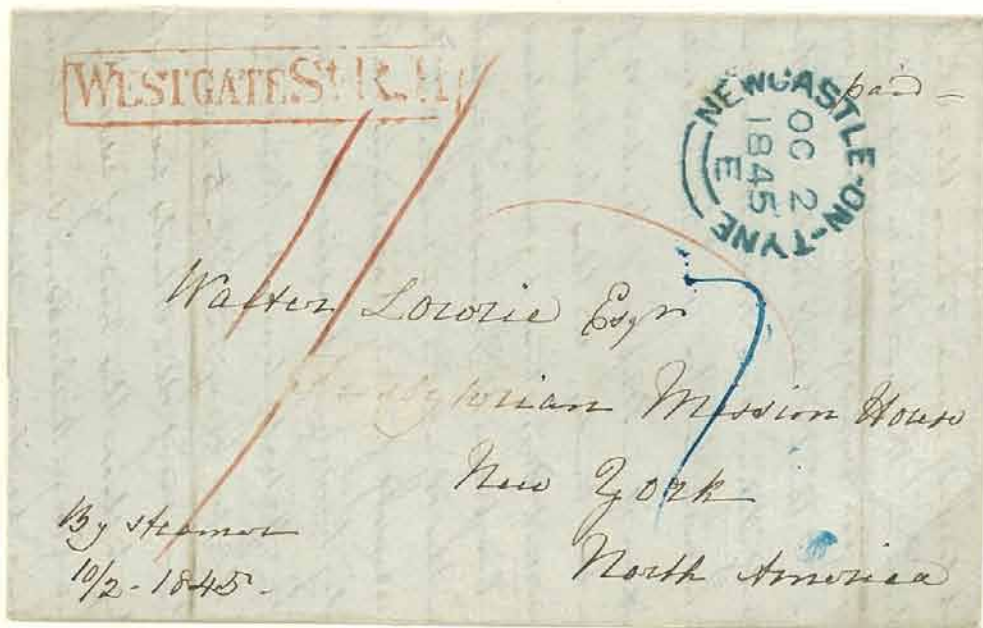 WESTGATE St R.H.
paid -
NEWCASTLE-ON-TYNE
OC 2
1845
E
1/
7
Walter Lowrie Esqr
Presbyterian Mission House
New York
North America
By steamer
10/2 - 1845.